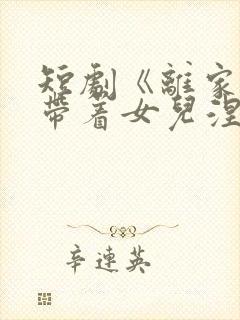 短劇《離家
帶着女兒涅
辛連英